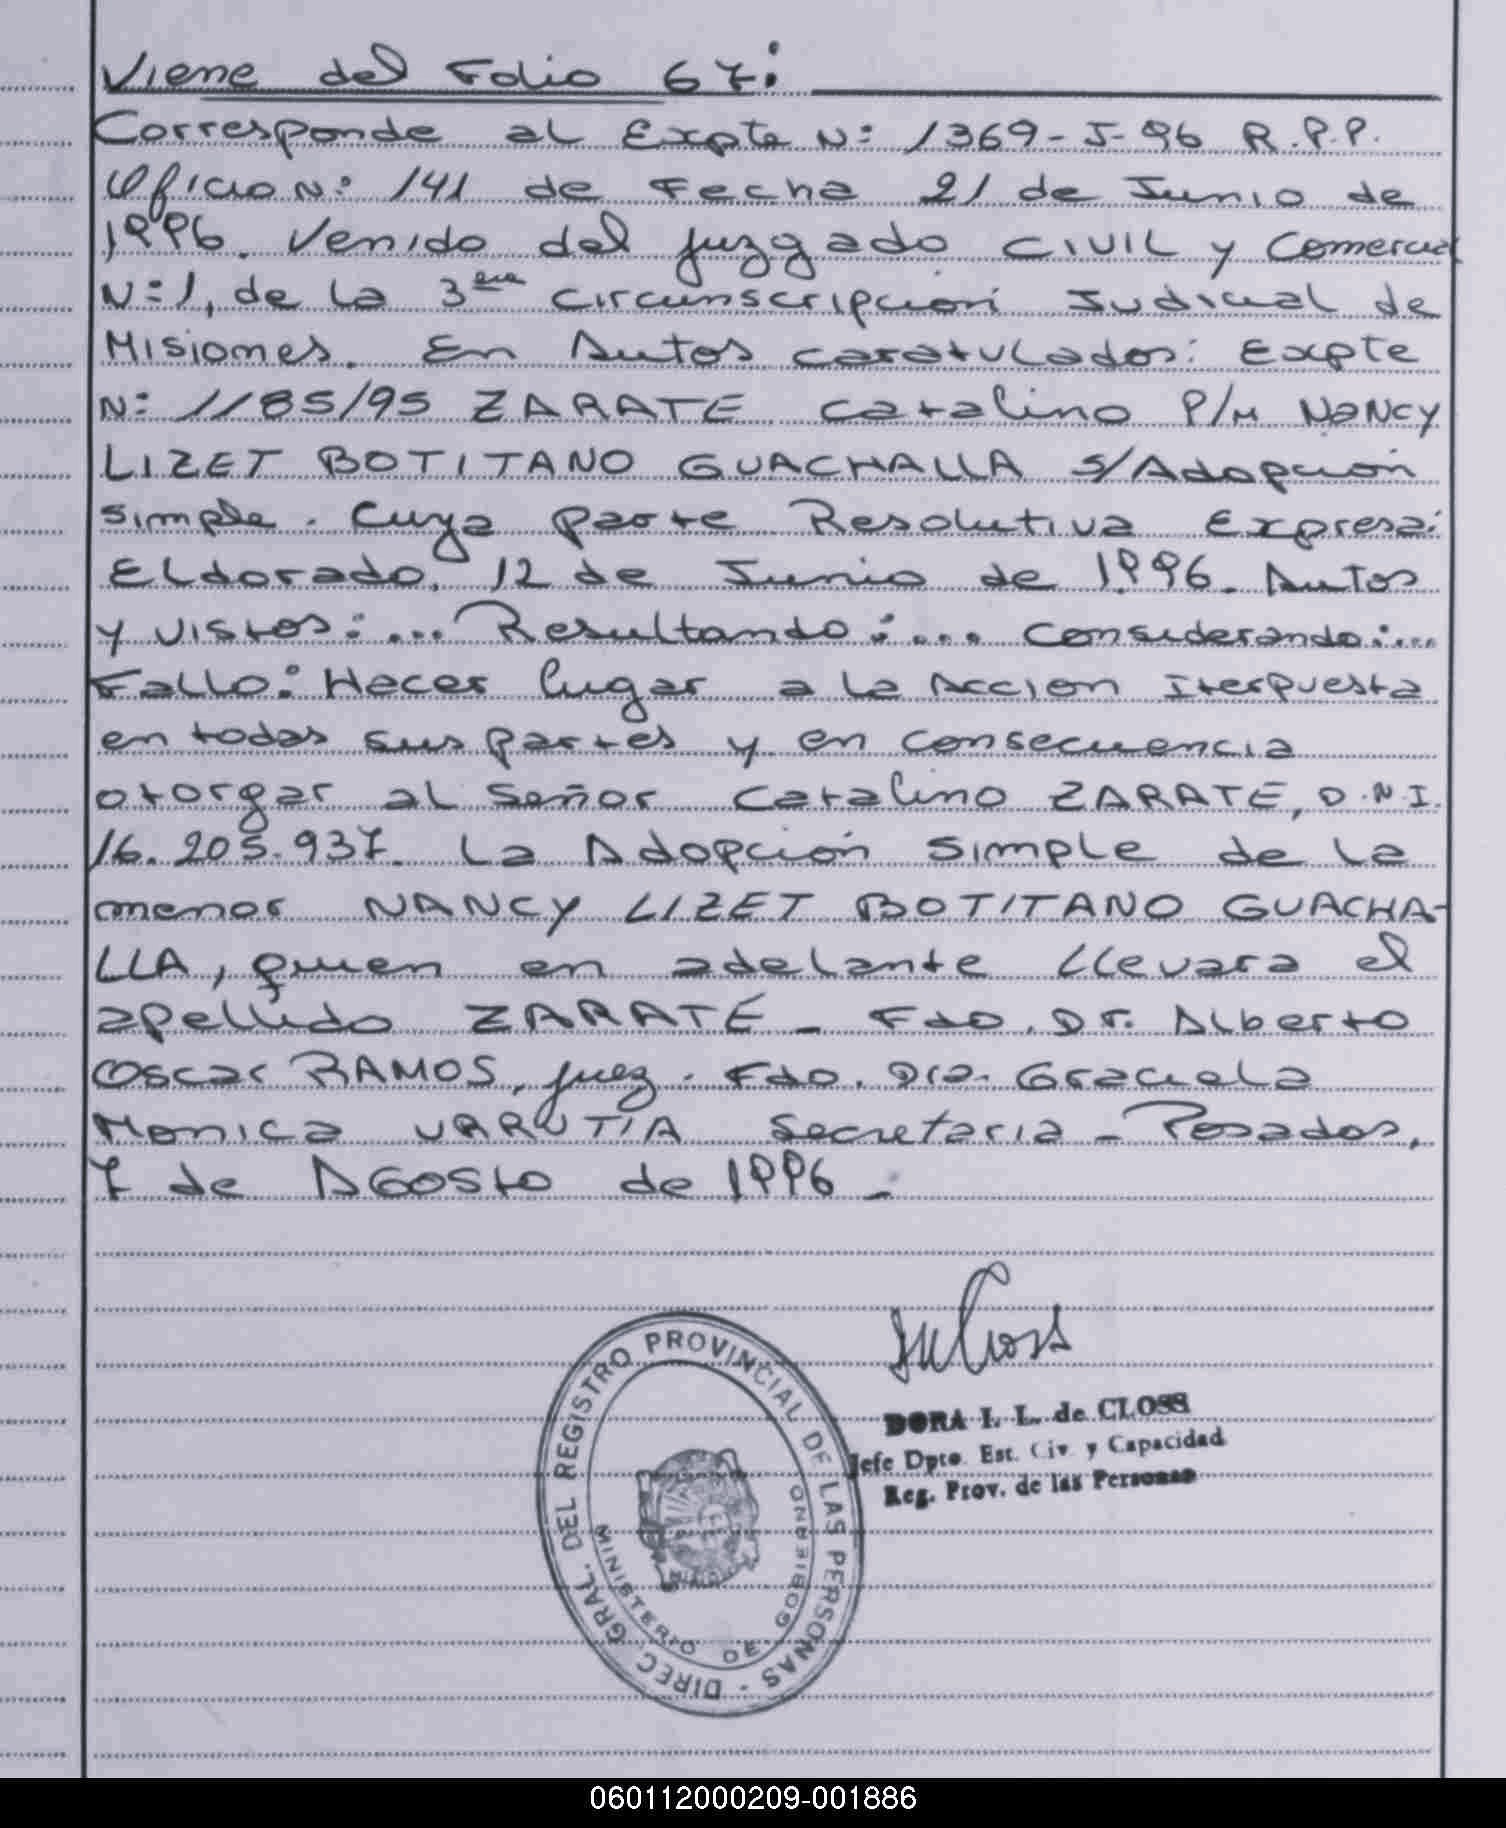 Viene del Folio 67:
Corresponde al Expte N: 1369-J-96 R.P.P.
Oficio N: 141 de Fecha 21 de Junio de
1996. Venido del juzgado CIVIL y Comercial
N:1, de la 3era Circunscripción Judicial de
Misiones. En Autos caratulados: Expte
N: 1185/95 ZARATE Catalino P/M NANCY
LIZET BOTITANO GUACHALLA S/Adopción
simple. Cuya parte Resolutiva Expresa:
Eldorado, 12 de Junio de 1996. Autos
y vistos:... Resultando:... Considerando:...
Fallo: Hacer lugar a la Accion Iterpuesta
en todas sus partes y en consecuencia
otorgar al Señor Catalino ZARATE, D.N.I.
16.205.937. La Adopción Simple de la
menor NANCY LIZET BOTITANO GUACHA-
LLA, quien en adelante llevara el
apellido ZARATE - Fdo. Dr. Alberto
Oscar RAMOS, juez. Fdo. Dra. Graciela
Monica URRUTIA Secretaria - Posadas,
7 de AGOSTO de 1996 -
DORA I. L. de CLOSS
Jefe Dpto. Est. Civ. y Capacidad
Reg. Prov. de las Personas
DIREC. GRAL. DEL REGISTRO PROVINCIAL DE LAS PERSONAS -
MINISTERIO DE GOBIERNO
060112000209-001886